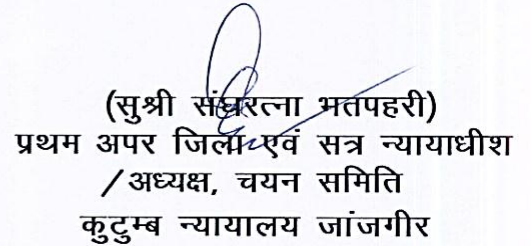 (सुश्री संघरत्ना भतपहरी)
प्रथम अपर जिला एवं सत्र न्यायाधीश
/अध्यक्ष, चयन समिति
कुटुम्ब न्यायालय जांजगीर